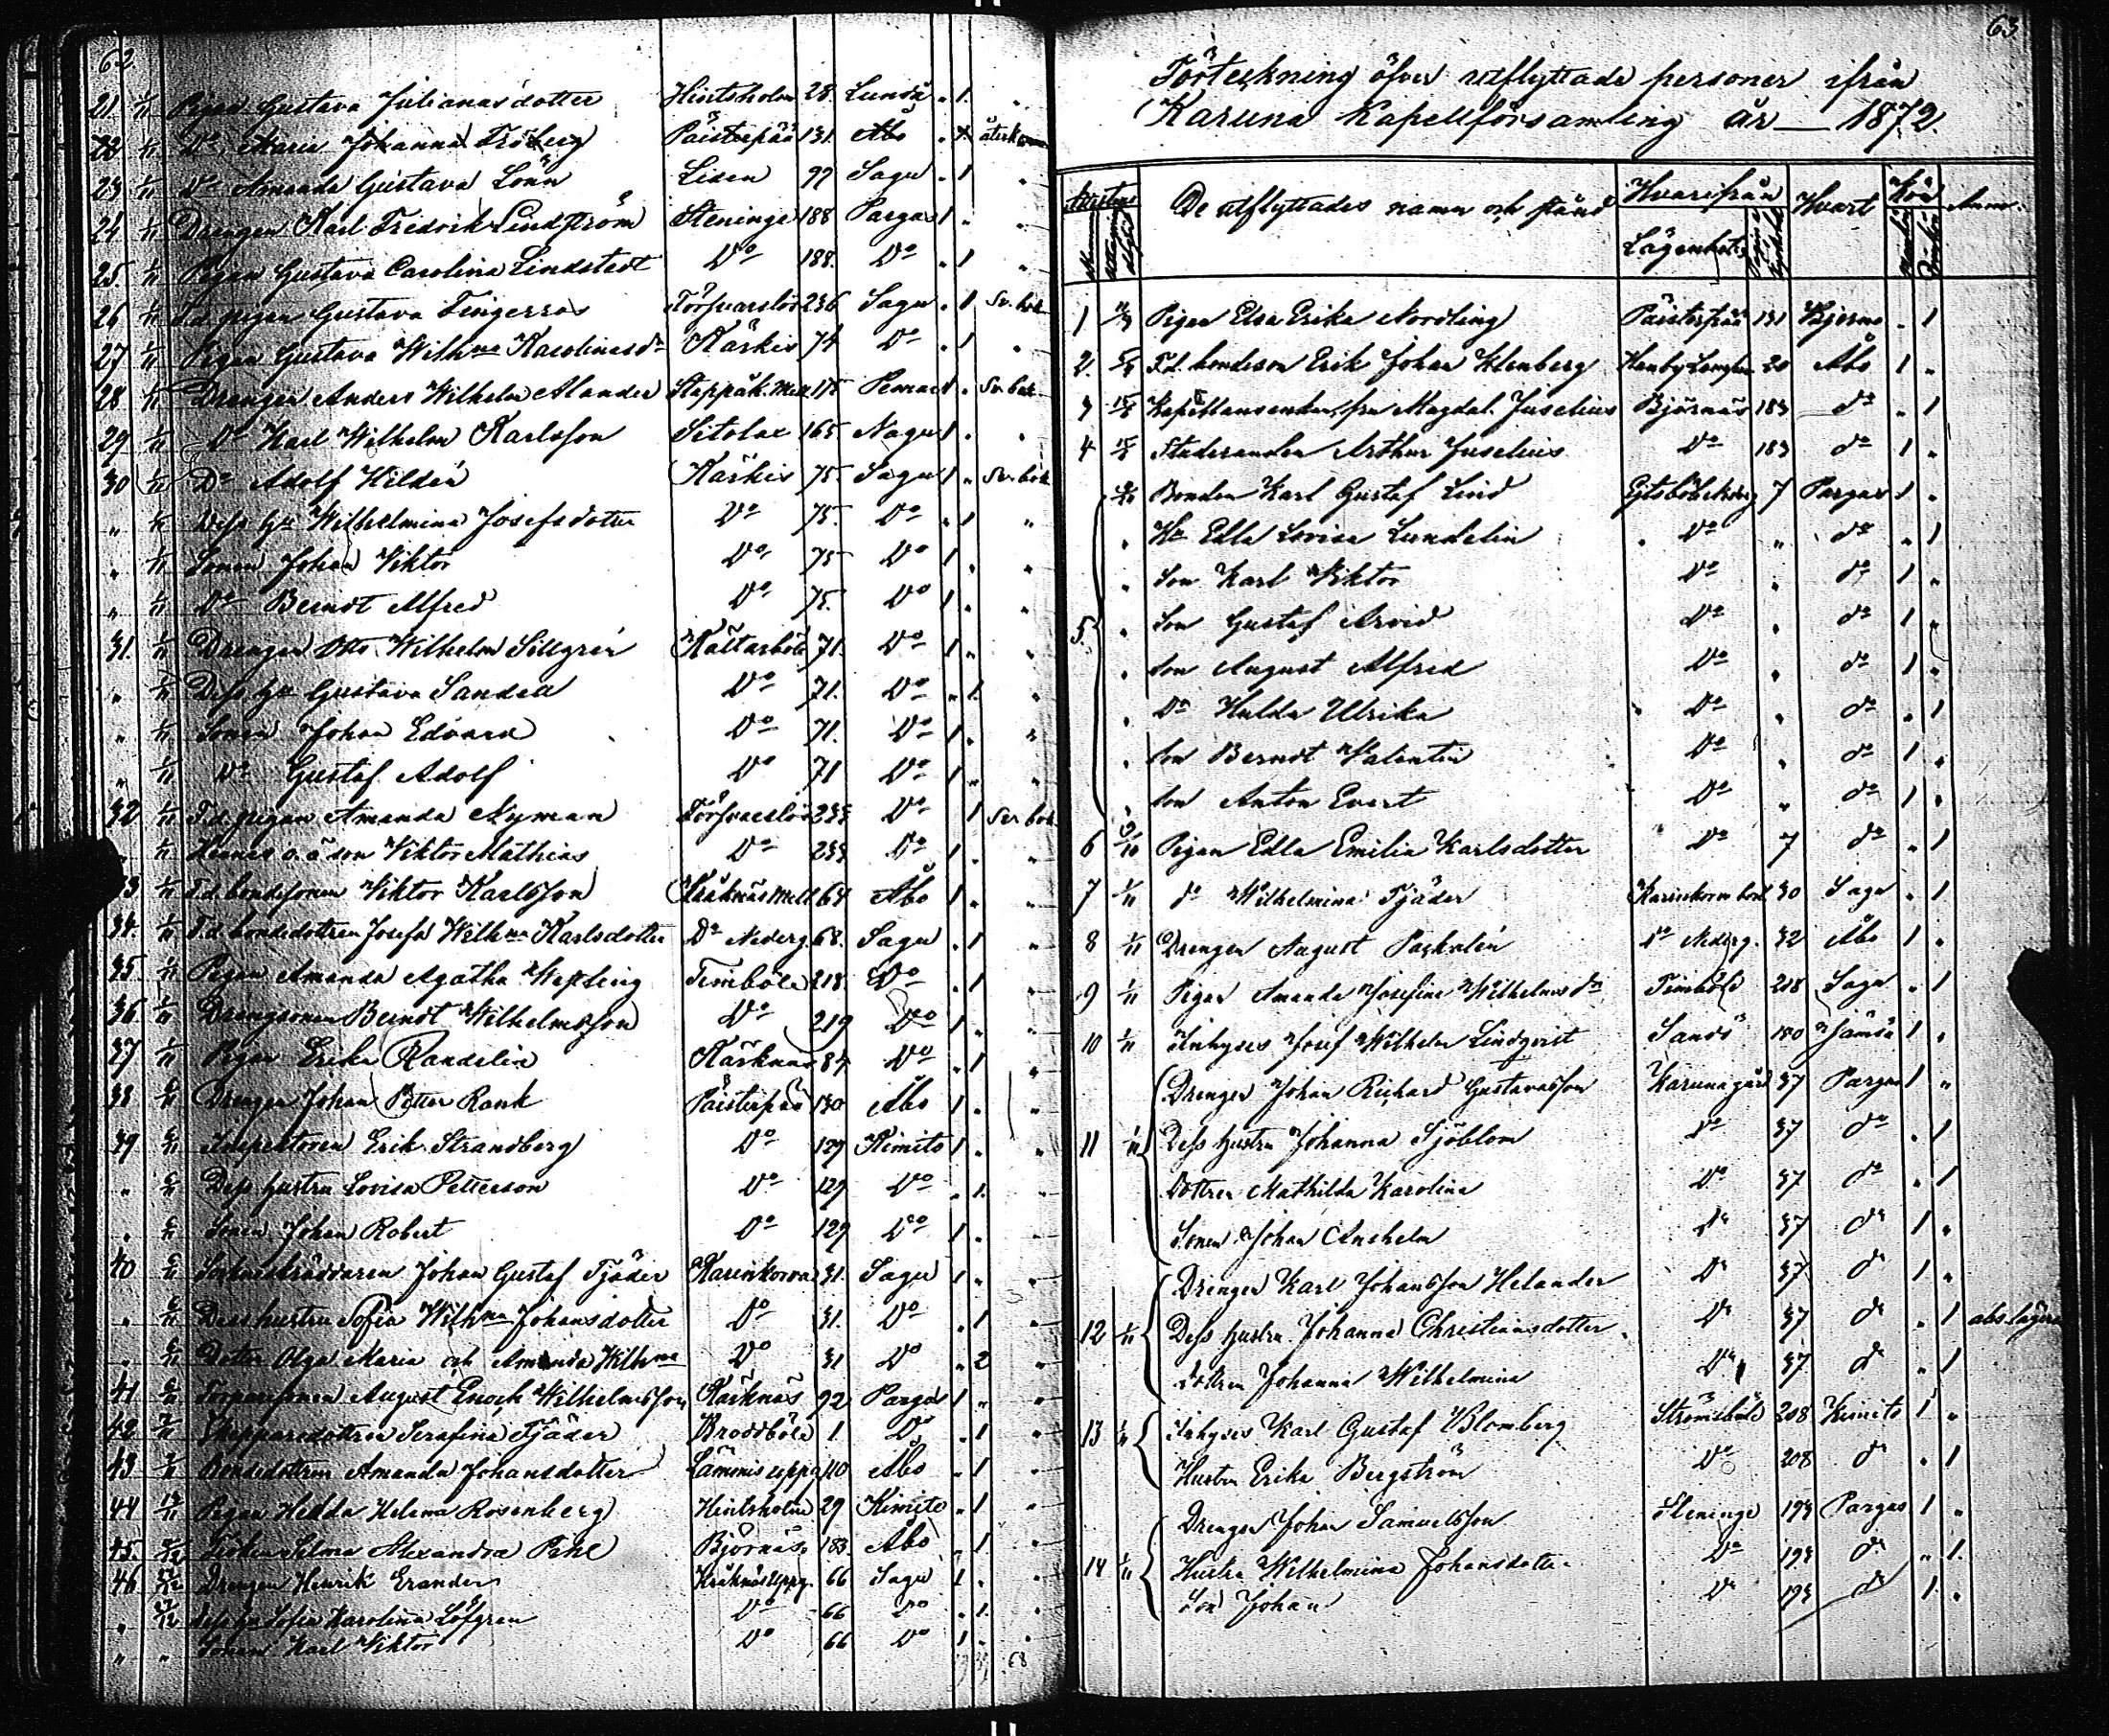 62
21. 1/11 Pigan Gustava Julianasdotter Hintsholm 28. Lundå " 1. "
22 1/11 Do Maria Johanna Fröberg Päisterpää 131. Åbo " 1 återkom
23 1/11 Do Amanda Gustava Lönn Liden 99 Sagu " 1 "
24 1/11 Drengen Karl Fredrik Lindström Steninge 188 Pargas 1 " "
25. 1/11 Pigan Gustava Carolina Lindstedt Do 188. Do " 1 "
26 1/11 F.d. pigan Gustava Tingerroos 236 Sagu " 1 Sv. bok
27 1/11 Pigan Gustava Wilhma Karolinasdr Kärkis 74 Do " 1 "
28 1/11 Drengen Anders Wilhelm Alander Mell. 115 Pemar 1 " Sv. bok
29 1/11 Do Karl Wilhelm Karlsson Sitolax 165 Nagu 1 " "
30 1/11 Do Adolf Hildén Kärkis 75. Sagu 1 " Sv. bok
" 1/11 Dess hu Wilhelmina Josefsdotter Do 75. Do " 1 "
" 1/11 Sonen Johan Viktor Do 75 Do 1 " "
" 1/11 Do Berndt Alfred Do 75. Do 1 " "
31. 1/11 Drengen Otto Wilhelm Sillgrén Kättarböle 71. Do 1 " "
" 1/11 Dess hu Gustava Sandell Do 71. Do " 1. "
" 1/11 Sonen Johan Edvard Do 71. Do 1 " "
" 1/11 Do Gustaf Adolf Do 71 Do 1 " "
32 1/11 F.d. pigan Amanda Nyman 233 Do " 1 Sv. bok.
" 1/11 Hennes o.ä son Viktor Mathias Do 233 Do 1 " "
33 1/11 F.d. bondesonen Viktor Karlsson Kräknäs Mell. 64 Åbo 1 " "
34. 1/11 F.d. bondedottren Josefa Wilhma Karlsdotter Do Nederg. 68. Sagu " 1 "
35. 1/11 Pigan Amanda Agatha Westling Timböle 218. Do " 1 "
36 1/11 Drengsonen Berndt Wilhelmsson Do 219 Do 1 " "
37 1/11 Pigan Erika Randelin Kärknäs 84. Do " 1 "
38 Drengen Johan Petter Rank Päisterpää 130 Åbo 1 " "
39 Inspektoren Erik Strandberg Do 129 Kimito 1 " "
" Dess hustru Lovisa Petterson Do 129 Do " 1. "
" Sonen Johan Robert Do 129 Do 1 " "
40 Sockneskräddaren Johan Gustaf Tjäder Karinkorva 31. Sagu 1 " "
" Dess hustru Sofia Wilhma Johansdotter Do 31. Do " 1 "
" Dotter Olga Maria och Amanda Wilhma Do 31 Do " 2 "
41 Torparesonen August Enock Wilhelmsson Kärknäs 92 Pargas 1 " "
42 Skepparedottren Serafina Tjäder Broddböle 1. Do " 1 "
43 Bondedottren Amanda Johansdotter 110 Åbo " 1 "
44 Pigan Hedda Helena Rosenberg Hintsholm 29 Kimito " 1 "
45. Fröken Selma Alexandra Björnäs 183 Åbo " 1 "
46 Drengen Henrik Erander Kräknäs Uppg. 66 Sagu 1 " "
" Dess hu Sofia Karolina Löfgren Do 66 Do " 1. "
" " Sonen Karl Viktor Do 66 Do 1 " "
63
Förteckning öfver utflyttade personer ifrån
Karuna Kapellförsamling år — 1872.
De utflyttades namn och stånd Hvarifrån Hvart Kön Anm.
Lägenhet
1 Pigan Elsa Erika Nordling Päisterpää 131 Bjerno " 1
2. F.d. bondeson Erik Johan Klenberg 20 Åbo 1 "
3 Kapellansenkefru Magdal. Juselius Björnäs 183 do " 1
4 Studeranden Arthur Juselius Do 183 do 1 "
5. Bonden Karl Gustaf Lind 7 Pargas 1 "
" Hu Edla Lovisa Lundelin Do " do " 1
" Son Karl Viktor Do " do 1 "
" Son Gustaf Arvid Do " do 1 "
" Son August Alfred Do " do 1 "
" Dr Hulda Ulrika Do " do " 1
" Son Berndt Valentin Do " do 1 "
" Son Anton Evert Do " do 1 "
6 Pigan Edla Emilia Karlsdotter Do 7 do " 1
7 1/11 do Wilhelmina Tjäder 30 Sagu " 1
8 1/11 Drengen August Paskalin Do Nederg. 32 Åbo 1 "
9 1/11 Pigan Amanda Josefina Wilhelmsdr Timböle 218 Sagu " 1
10 1/11 Inhyses Josef Wilhelm Lindqvist Sandö 180 Jämsä 1 "
Drengen Johan Richard Gustavasson Karuna gård 37 Pargas 1 "
11 1/11 Dess hustru Johanna Sjöblom Do 37 do " 1
Dottren Mathilda Karolina Do 37 do " 1
Sonen Johan Anshelm Do 37 do 1 "
Drengen Karl Johansson Helander Do 37 do 1 "
12 1/11 Dess hustru Johanna Christiansdotter Do 37 do " 1
Dottren Johanna Wilhelmina Do 37 do " 1
13 1/11 Inhyses Karl Gustaf Blomberg Strömsböle 208 Kimito 1 "
Hustru Erika Bergström Do 208 do " 1
Drengen Johan Samuelsson Steninge 193 Pargas 1 "
14 1/11 Hustru Wilhelmina Johansdotter Do 193 do " 1.
Son Johan Do 193 do 1 "